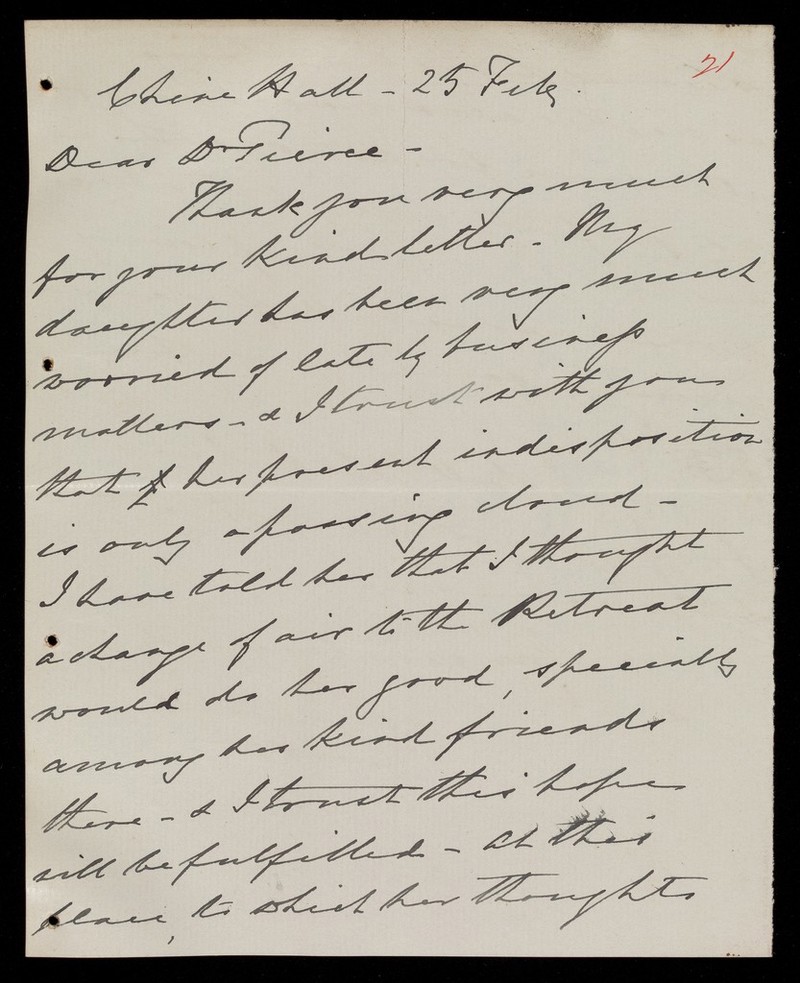 21
Clive Hall - 25 Feby.
Dear Dr Pierce -
Thank you very much
for your kind letter - My
daughter has been very much
worried of late by business
matters - & I trust with you
that her present indisposition
is only a passing cloud -
I have told her that I thought
a change of air to the Retreat
would do her good, specially
among her kind friends
there - & I trust this hope
will be fulfilled - At this
place, to which her thoughts